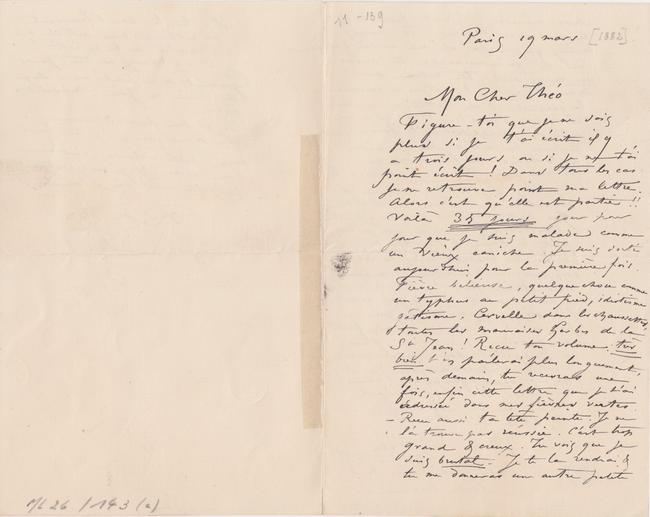 11-139
Paris 19 mars [1882]
Mon Cher Théo
Figure-toi que je ne sais
plus si je t'ai écrit il y
a trois jours ou si je ne t'ai
point écrit ! Dans tous les cas
je ne retrouve point ma lettre.
Alors c'est qu'elle est partie !!
Voilà 35 jours jour pour
jour que je suis malade comme
un vieux caniche. Je suis sorti
aujourd'hui pour la première fois.
Fièvre bilieuse, quelque chose comme
un typhus au petit pied, idiotisme
gâtisme. Cervelle dans les chaussettes
toutes les mauvaises herbes de la
St Jean ! Recu ton volume très
bien t'en parlerai plus longuement,
après demain, tu recevras une
fois, enfin cette lettre que je t'ai
adressée dans mes fièvres vertes.
– Recu aussi ta tête peinte. Je ne
la trouve pas réussie. C'est trop
grand & creux. Tu vois que je
suis brutal. Je te la rendrai &
tu me donneras un autre petite
26 / 143 (a)